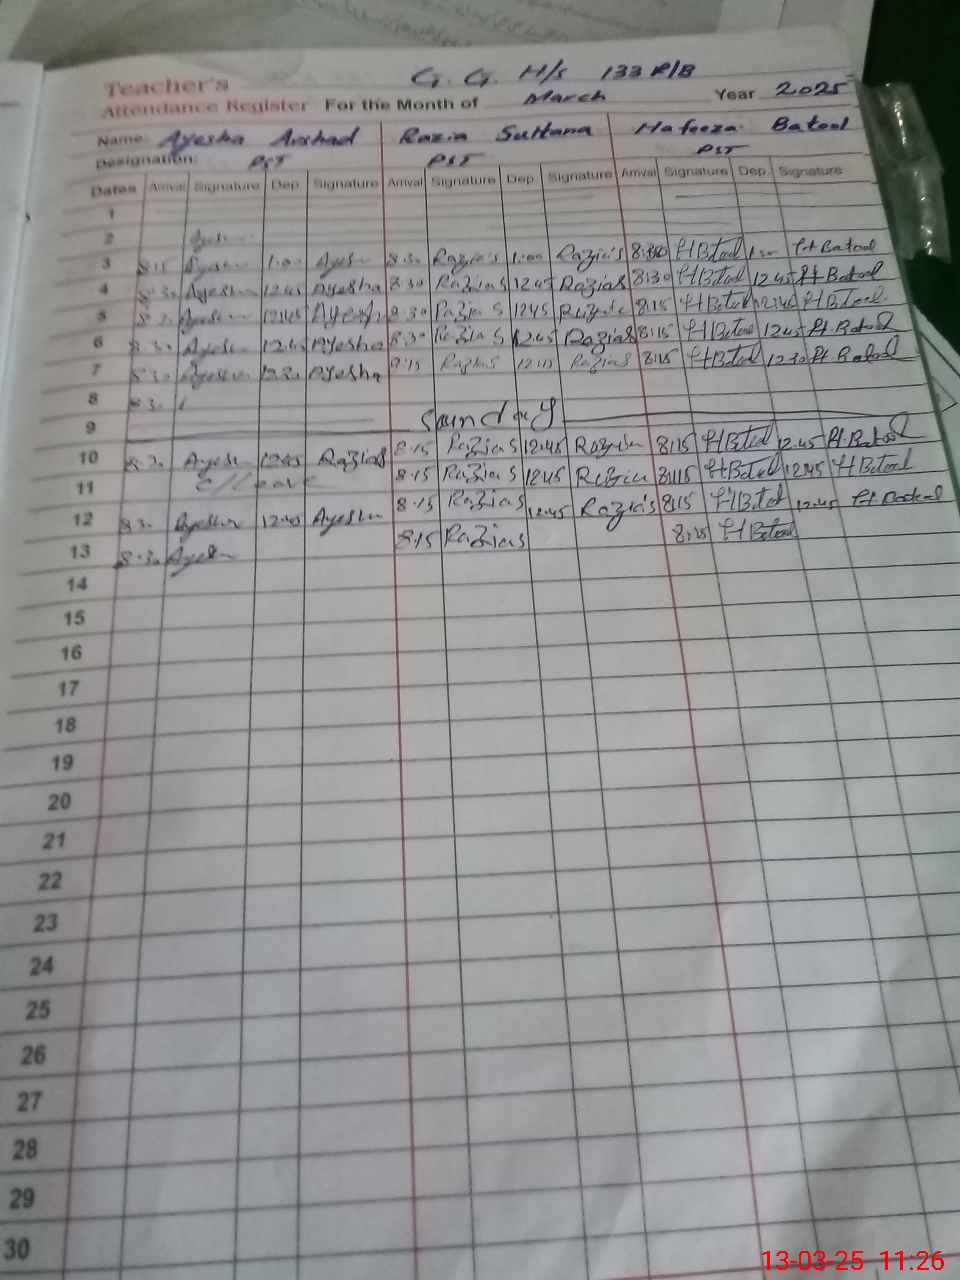 G. G. H/s 133 R/B
Teacher's
Attendance Register For the Month of March Year 2025
Name: Ayesha Arshad Razia Sultana Hafeeza Batool
Designation: PST PST PST
Dates Arrival Signature Dep. Signature Arrival Signature Dep. Signature Arrival Signature Dep. Signature
1
2
3 8:15 1:00 8:30 Razia's 1:00 Razia's H Batool
4 Ayesha 12:45 Ayesha 8:30 Razias 12:45 Razias 8:30 H Batool 12:45 H Batool
5 12:45 8:30 Razias 12:45 8:15 H Batool 12:45 H Batool
6 8:30 12:45 Ayesha 8:30 Razias 12:45 Razias 8:15 H Batool 12:45 H. Batool
7 8:30 12:30 Ayesha 8:15 Razias Razias 8:15 H Batool 12:30 H. Batool
8 8:30
9 Sunday
10 12:45 Razias 8:15 Razias 12:45 8:15 H Batool 12:45 H. Batool
11 8:15 Razias 12:45 8:15 H Batool 12:45 H Batool
12 12:45 8:15 Razias 12:45 Razia's 8:15 H Batool 12:45 H Batool
13 8:30 8:15 Razias 8:25 H Batool
14
15
16
17
18
19
20
21
22
23
24
25
26
27
28
29
30
13-03-25 11:26